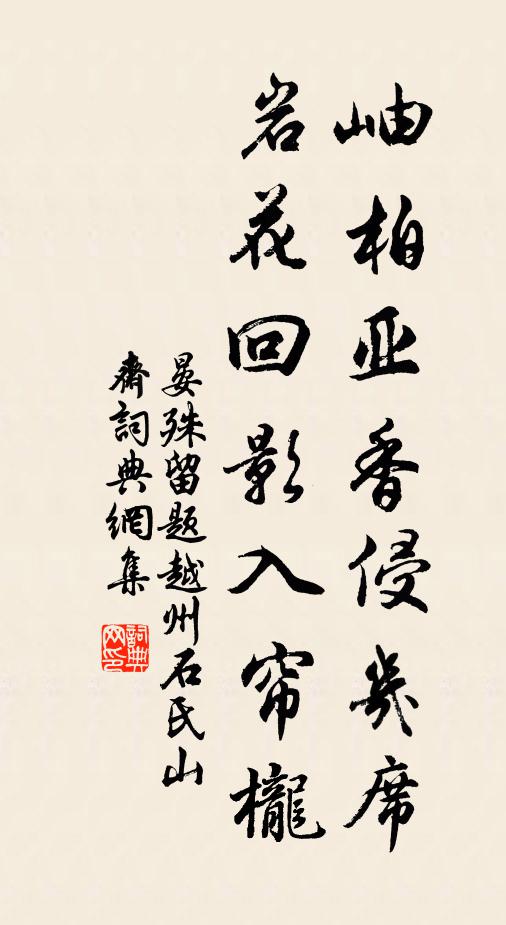 岫柏亚香侵幾席
岩花回影入帘櫳
晏殊留题越州石氏山
齋詞典網集
詞典网印